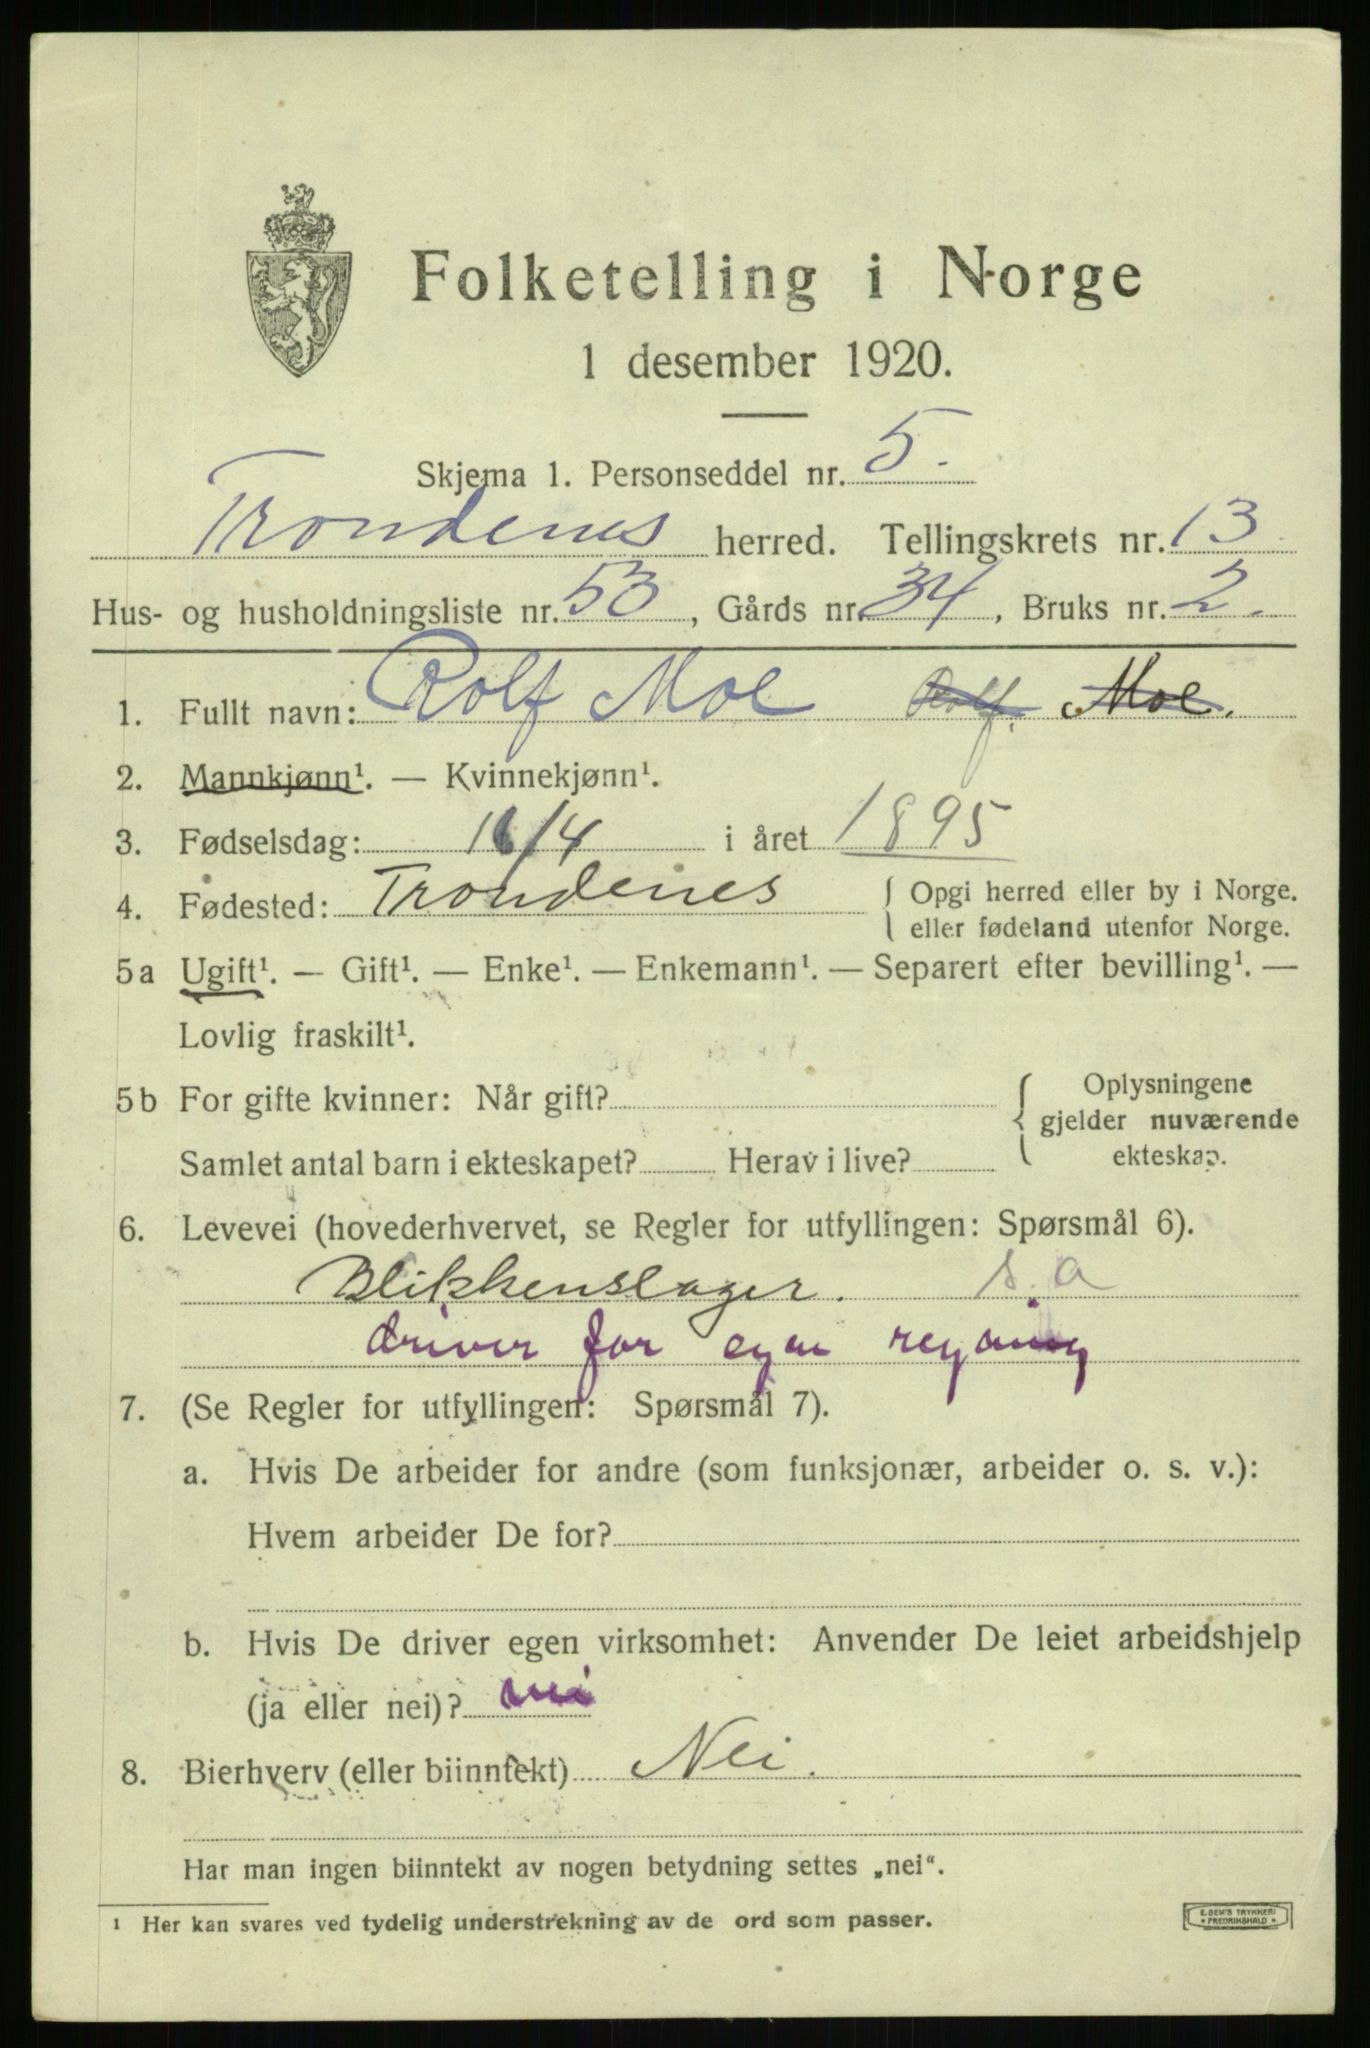 Folketelling i Norge
1 desember 1920.
Skjema 1. Personseddel nr. 5.
Trondenes herred. Tellingskrets nr. 13
Hus- og husholdningsliste nr. 53, Gårds nr. 34, Bruks nr. 2.
1. Fullt navn: Rolf Moe Rolf. Moe.
2. Mannkjønn¹. — Kvinnekjønn¹.
3. Fødselsdag: 16/4 i året 1895
4. Fødested: Trondenes { Opgi herred eller by i Norge.
eller fødeland utenfor Norge.
5a Ugift¹. — Gift¹. — Enke¹. — Enkemann¹. — Separert efter bevilling¹. —
Lovlig fraskilt¹.
5b For gifte kvinner: Når gift? Oplysningene
gjelder nuværende
Samlet antal barn i ekteskapet? Herav i live? ekteskap.
6. Levevei (hovederhvervet, se Regler for utfyllingen: Spørsmål 6).
Blikkenslager. s. a
driver for egen regning
7. (Se Regler for utfyllingen: Spørsmål 7).
a. Hvis De arbeider for andre (som funksjonær, arbeider o. s. v.):
Hvem arbeider De for?
b. Hvis De driver egen virksomhet: Anvender De leiet arbeidshjelp
(ja eller nei)? nei
8. Bierhverv (eller biinntekt) Nei.
Har man ingen biinntekt av nogen betydning settes „nei“.
¹ Her kan svares ved tydelig understrekning av de ord som passer.
E. SEM'S TRYKKERI
FREDRIKSHALD